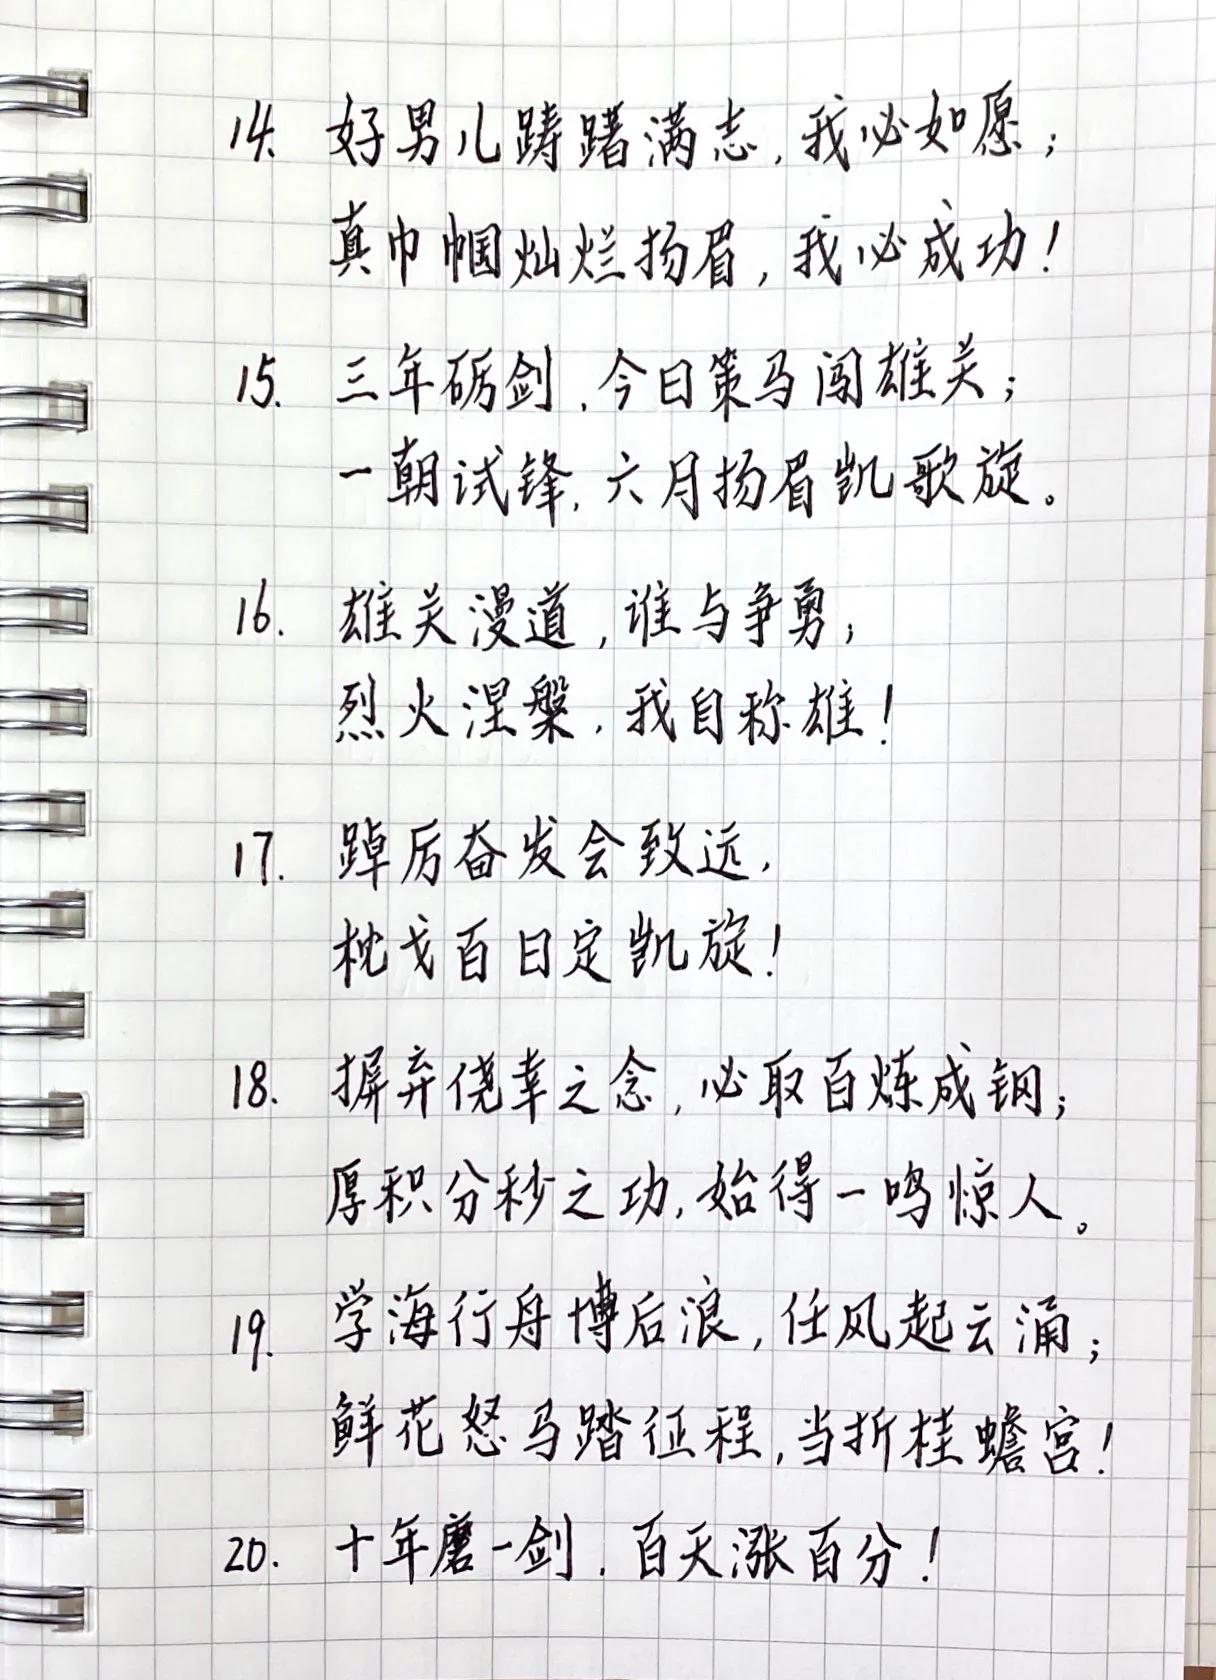 14. 好男儿踌躇满志，我必如愿；
真巾帼灿烂扬眉，我必成功！
15. 三年砺剑，今日策马闯雄关；
一朝试锋，六月扬眉凯歌旋。
16. 雄关漫道，谁与争勇；
烈火涅槃，我自称雄！
17. 踔厉奋发会致远，
枕戈百日定凯旋！
18. 摒弃侥幸之念，必取百炼成钢；
厚积分秒之功，始得一鸣惊人。
19. 学海行舟博后浪，任风起云涌；
鲜花怒马踏征程，当折桂蟾宫！
20. 十年磨一剑，百天涨百分！